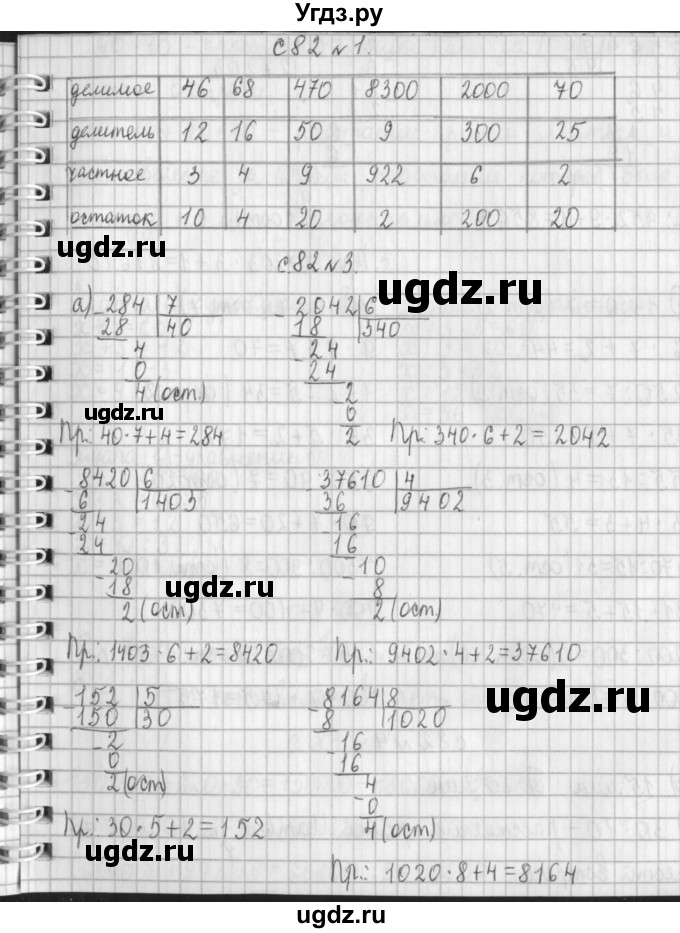 Угдз.ру
с 82 №1.
делимое 46 68 470 8300 2000 70
делитель 12 16 50 9 300 25
частное 3 4 9 922 6 2
остаток 10 4 20 2 200 20
ugdz.ru
с 82 №3.
ugdz.ru
а) 284 7 2042 6
28 40 18 340
4 24
0 24
4 (ост) 2
ugdz.ru
0
2
Пр.: 40·7+4=284 Пр.: 340·6+2=2042
8420 6 37610 4
6 1403 36 9402
24 16
24 16
20 10
18 8
2 (ост) 2 (ост)
ugdz.ru
Пр.: 1403·6+2=8420 Пр.: 9402·4+2=37610
ugdz.ru
152 5 8164 8
150 30 8 1020
2 16
0 16
2 (ост) 4
0
4 (ост)
Пр.: 30·5+2=152
ugdz.ru
ugdz.ru
Пр.: 1020·8+4=8164
ugdz.ru